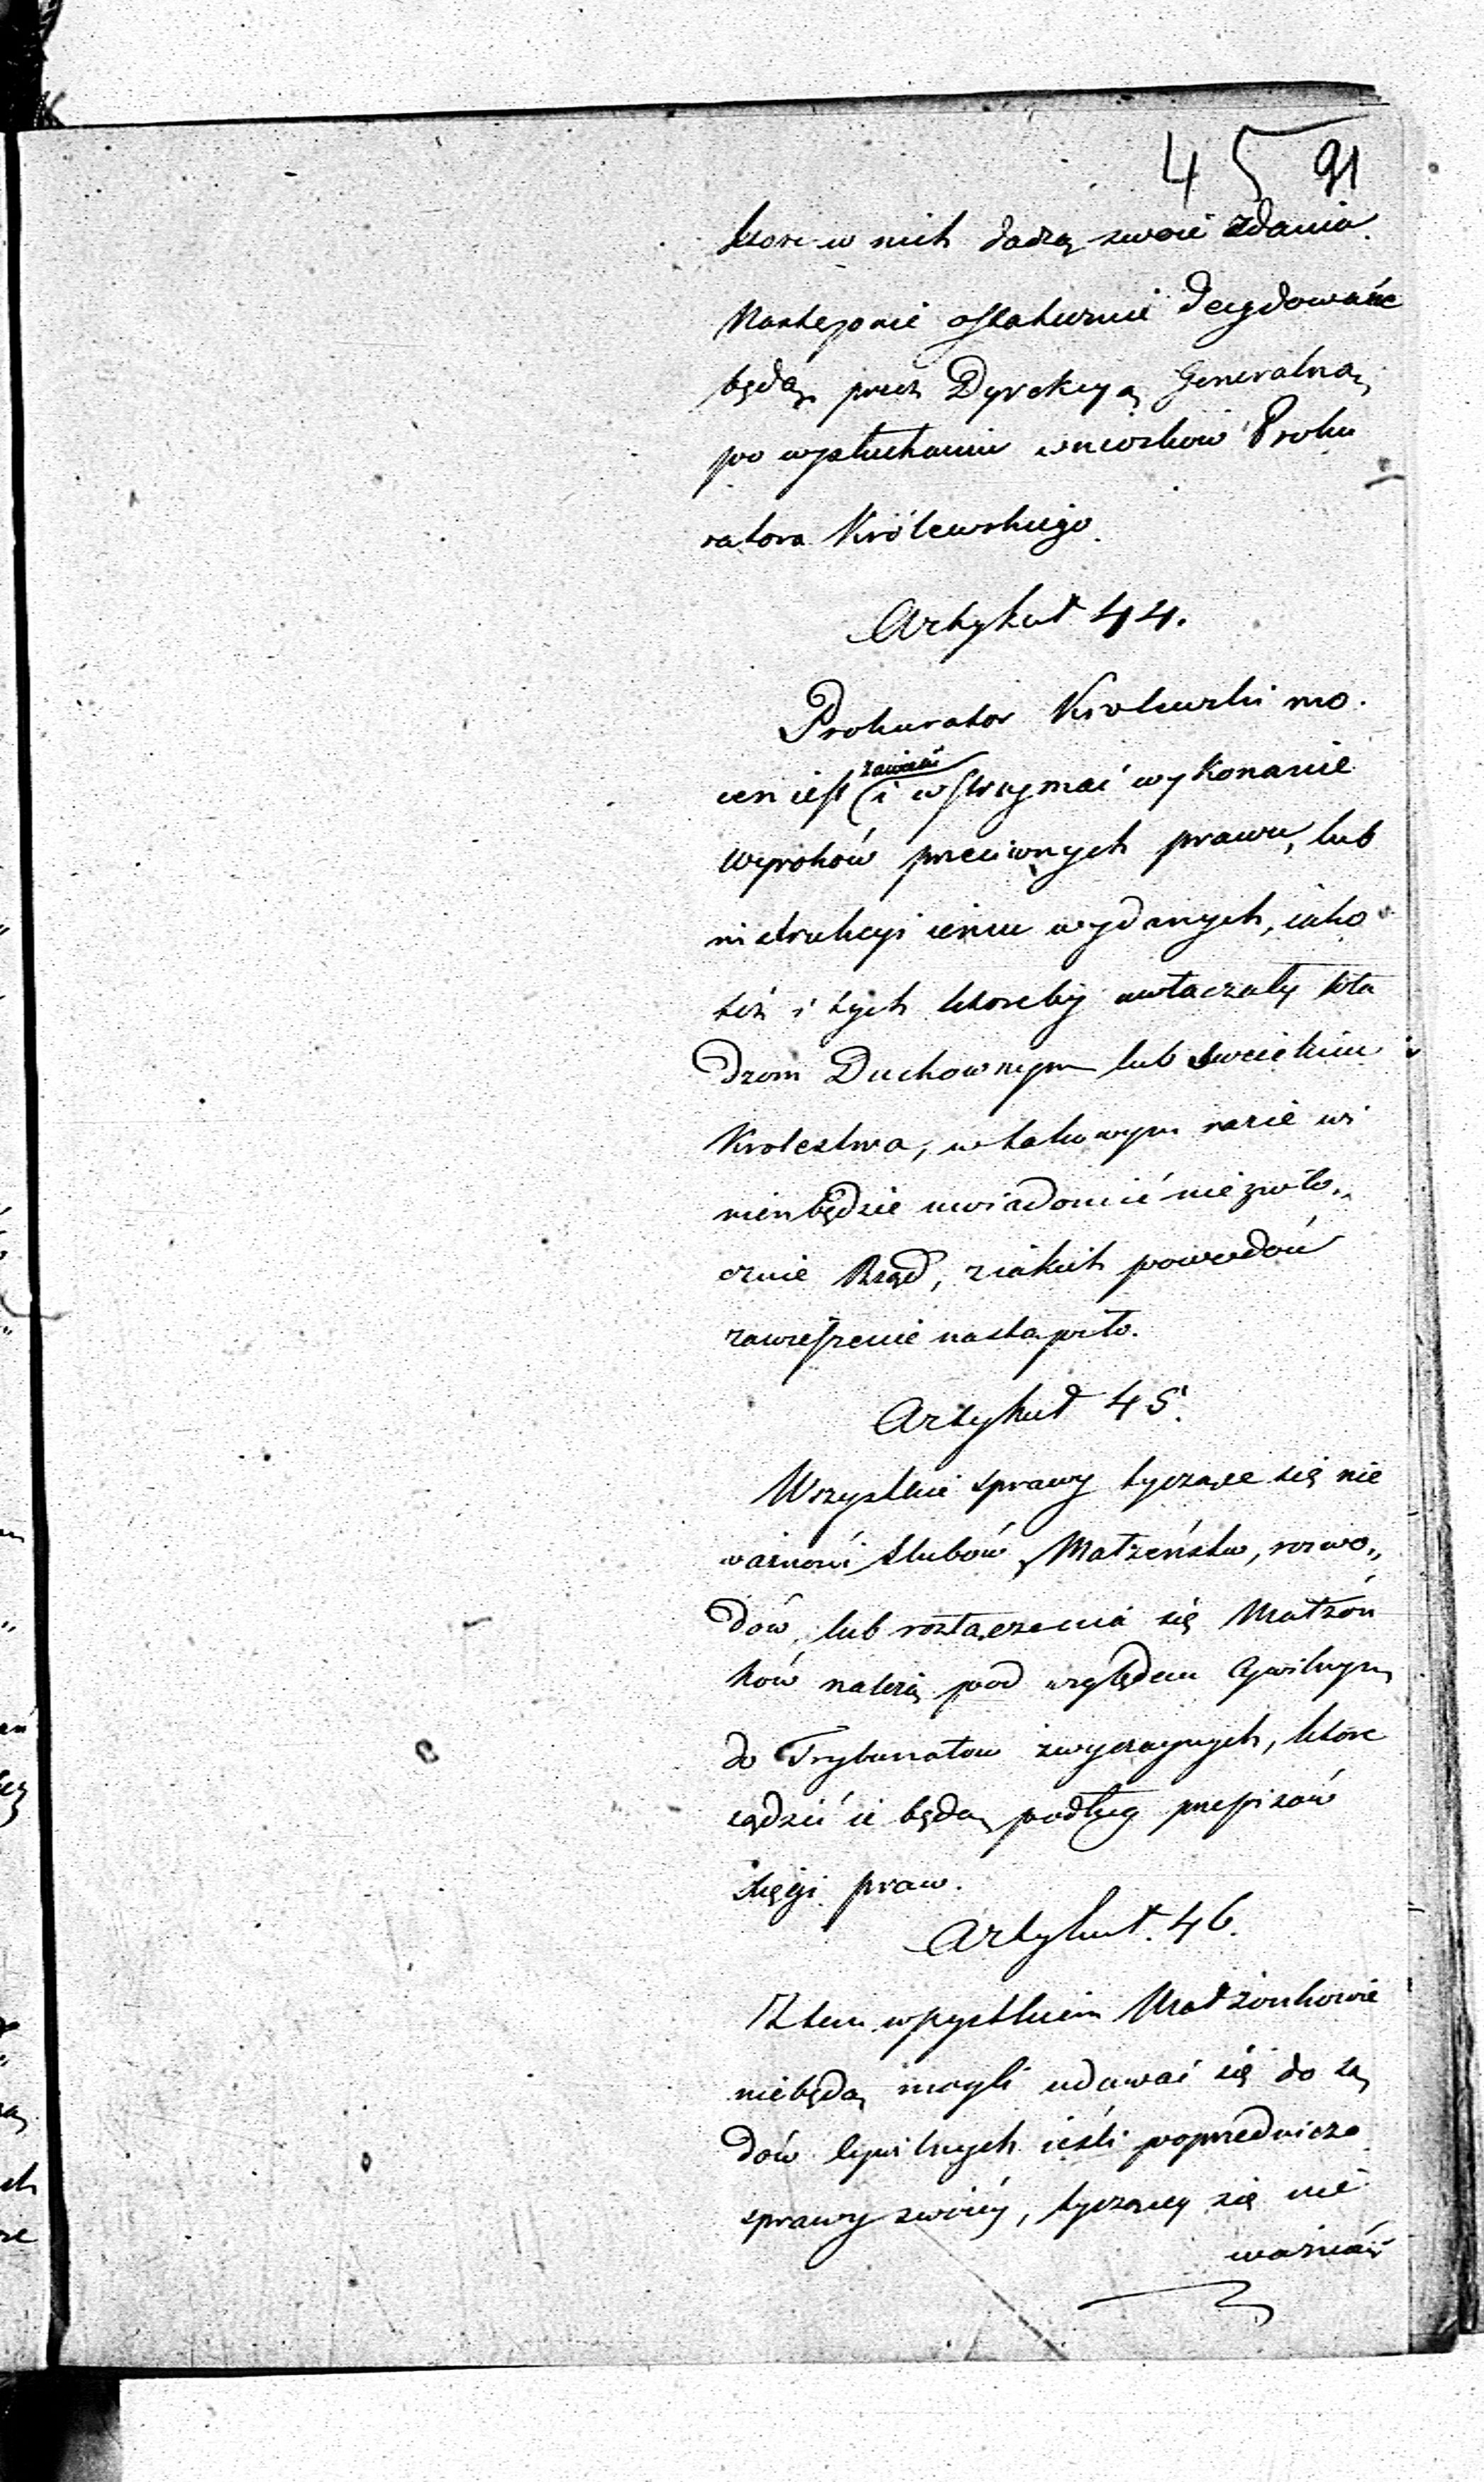 45 91
ktore w nich dadzą swoie zdania.
Następnie ostatecznie decydowane
będą, przez Dyrekcyą Generalną,
po wysłuchaniu wniosków Proku
ratora Królewskiego.
Artykuł 44.
Prokurator Krolewski mo.
cen iest zawiesić i wstrzymać wykonanie
wyroków przeciwnych prawu, lub
instrukcyi iemu wydanych, iako
też i tych ktoreby uwłaczały wła
dzom Duchownym lub świeckim
Krolestwa, w takowym razie wi
nien będzie uwiadomić niezwło„
cznie Rząd, z iakich powodów
zawieszenie nastąpiło.
Artykuł 45.
Wszystkie sprawy tyczące się nie
ważności ślubów, Małżeństw, rozwo„
dów, lub rozłączenia się Małżon
ków należą pod względem Cywilnym
do Trybunałow zwyczaynych, ktore
sądzić ie będą podług przepisów
księgi praw.
Artykuł. 46.
Z tem wszystkiem Małżonkowie
niebędą mogli udawać się do są
dów Cywilnych ieśli poprzedniczo
sprawy swoiey, tyczącey się nie
ważności